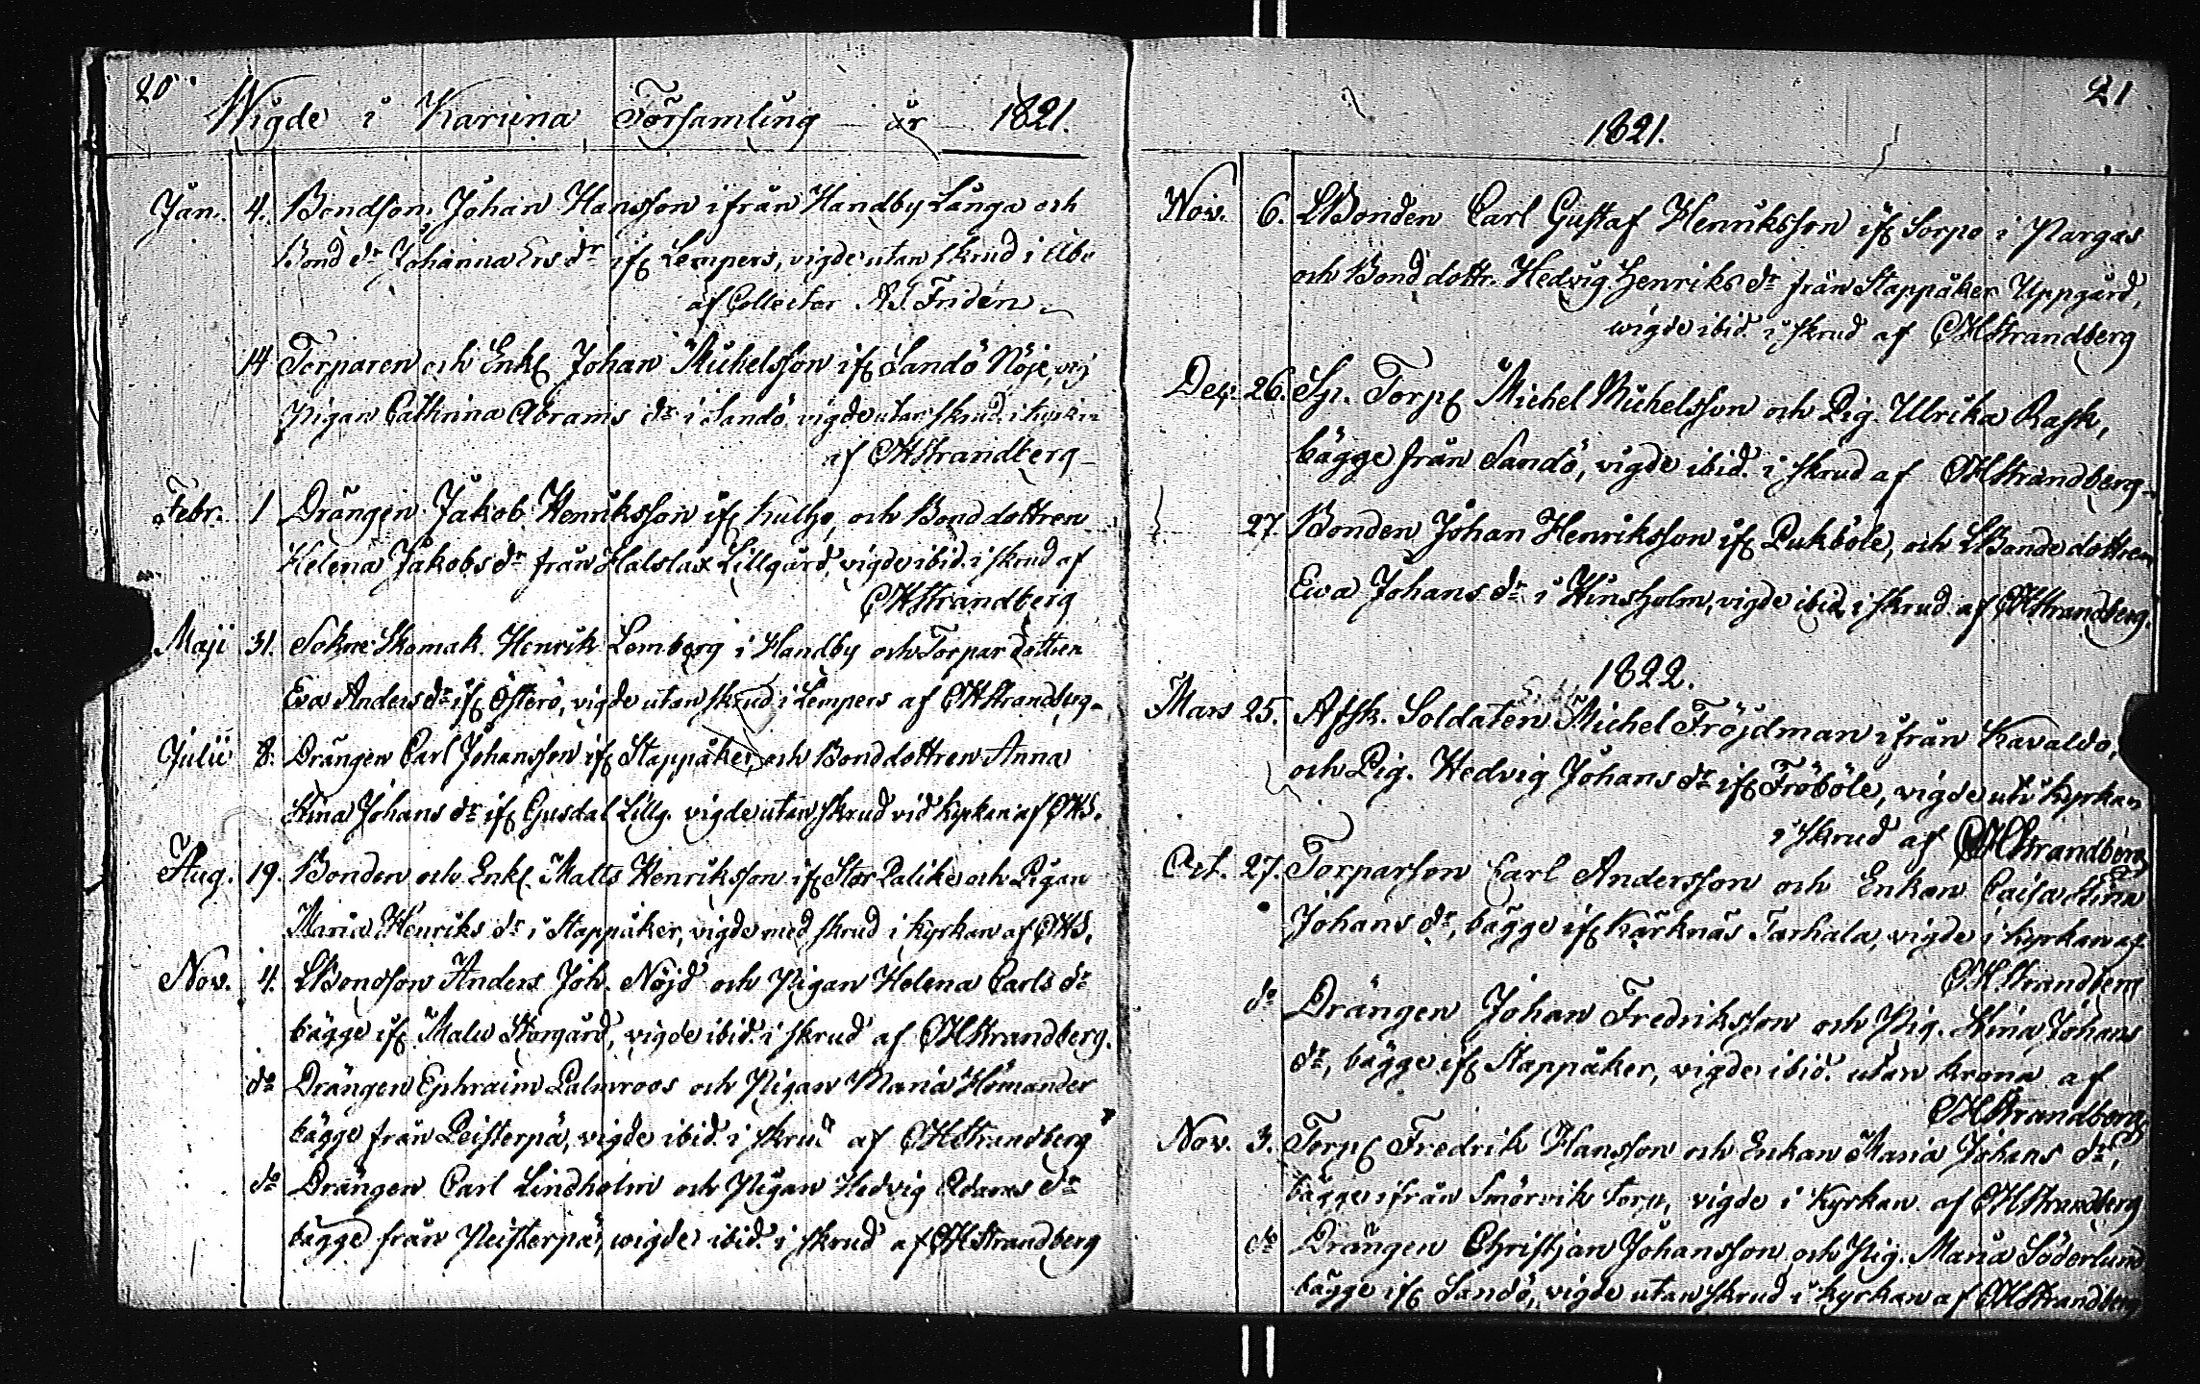 20.
Wigde i Karuna Församling år 1821.
Jan. 4. Bondson Johan Hansson ifrån Handby Långa och
Bond dr Johanna Ers dr ifr Lempers, vigde utan skrud i Åbo
af Collector A. J. Fridén
14 Torparen och Enkl Johan Michelsson ifr Sandö Nöje, och
Pigan Cathrina Abrams dr i Sandö vigde utan skrud i kyrkan
af CHStrandberg
Febr. 1 Drängen Jakob Henriksson ifr Kulho, och Bonddottren
Helena Jakobs dr från Halslax Lillgård, vigde ibid. i skrud af
CHStrandberg
Maji 31. Sokne Skomak. Henrik Lemberg i Handby och Torpardottren
Eva Anders dr ifr Österö, vigde utan skrud i Lempers af CHStrandberg
Julii 8. Drängen Carl Johansson ifr Stappåker och Bonddottren Anna
Stina Johans dr ifr Gusdal Lillg. vigde utan skrud vid kyrkan af CHS.
Aug. 19. Bonden och Enkl. Matts Henriksson ifr Stor Palike och Pigan
Maria Henriks dr i Stappåker, vigde med skrud i kyrkan af CHS.
Nov. 4. LBondson Anders Joh. Nöjd och Pigan Helena Carls dr
bägge ifr Malu Storgård, vigde ibid. i skrud af CHStrandberg.
do Drängen Ephraim Palmroos och Pigan Maria Homander
bägge från Peisterpä, vigde ibid. i skrud af CHStrandberg
do Drängen Carl Lindholm och Pigan Hedvig Adams dr
bägge från Peisterpä, wigde ibid. i skrud af CHStrandberg
21
1821.
Nov. 6. LBonden Carl Gustaf Henriksson ifr Sorpo i Pargas
och Bonddottr. Hedvig Henriks dr från Stappåker Uppgård,
wigde ibid. i skrud af CHStrandberg
Dec. 26. Sp. Torp Michel Michelsson och Pig. Ulrika Rask,
bägge från Sandö, vigde ibid. i skrud af CHStrandberg
27. Bonden Johan Henriksson ifr Pukböle, och LBondedottren
Ewa Johans dr i Hinsholm, vigde ibid i skrud af CHStrandberg.
1822.
Mars 25. Afsk. Soldaten Michel Fröjdman ifrån Kavaldo,
och Pig. Hedvig Johans dr ifr Fröböle, vigde uti kyrkan
i skrud af CHStrandberg
Oct. 27. Torparson Carl Andersson och Enkan Caisa Stina
Johans dr, bägge ifr Kärknäs Tarhala, vigde i kyrkan af
CHStrandberg
do Drängen Johan Fredriksson och Pig. Stina Johans
dr, bägge ifr Stappåker, vigde ibid. utan krona af
CHStrandberg
Nov. 3. Torp Fredrik Hansson och Enkan Maria Johans dr,
bägge ifrån Smörvik torp, vigde i Kyrkan af CHStrandberg
do Drängen Christjan Johansson och Pig. Maria Söderlund
bägge ifr Sandö, vigde utan skrud i kyrkan af CHStrandberg